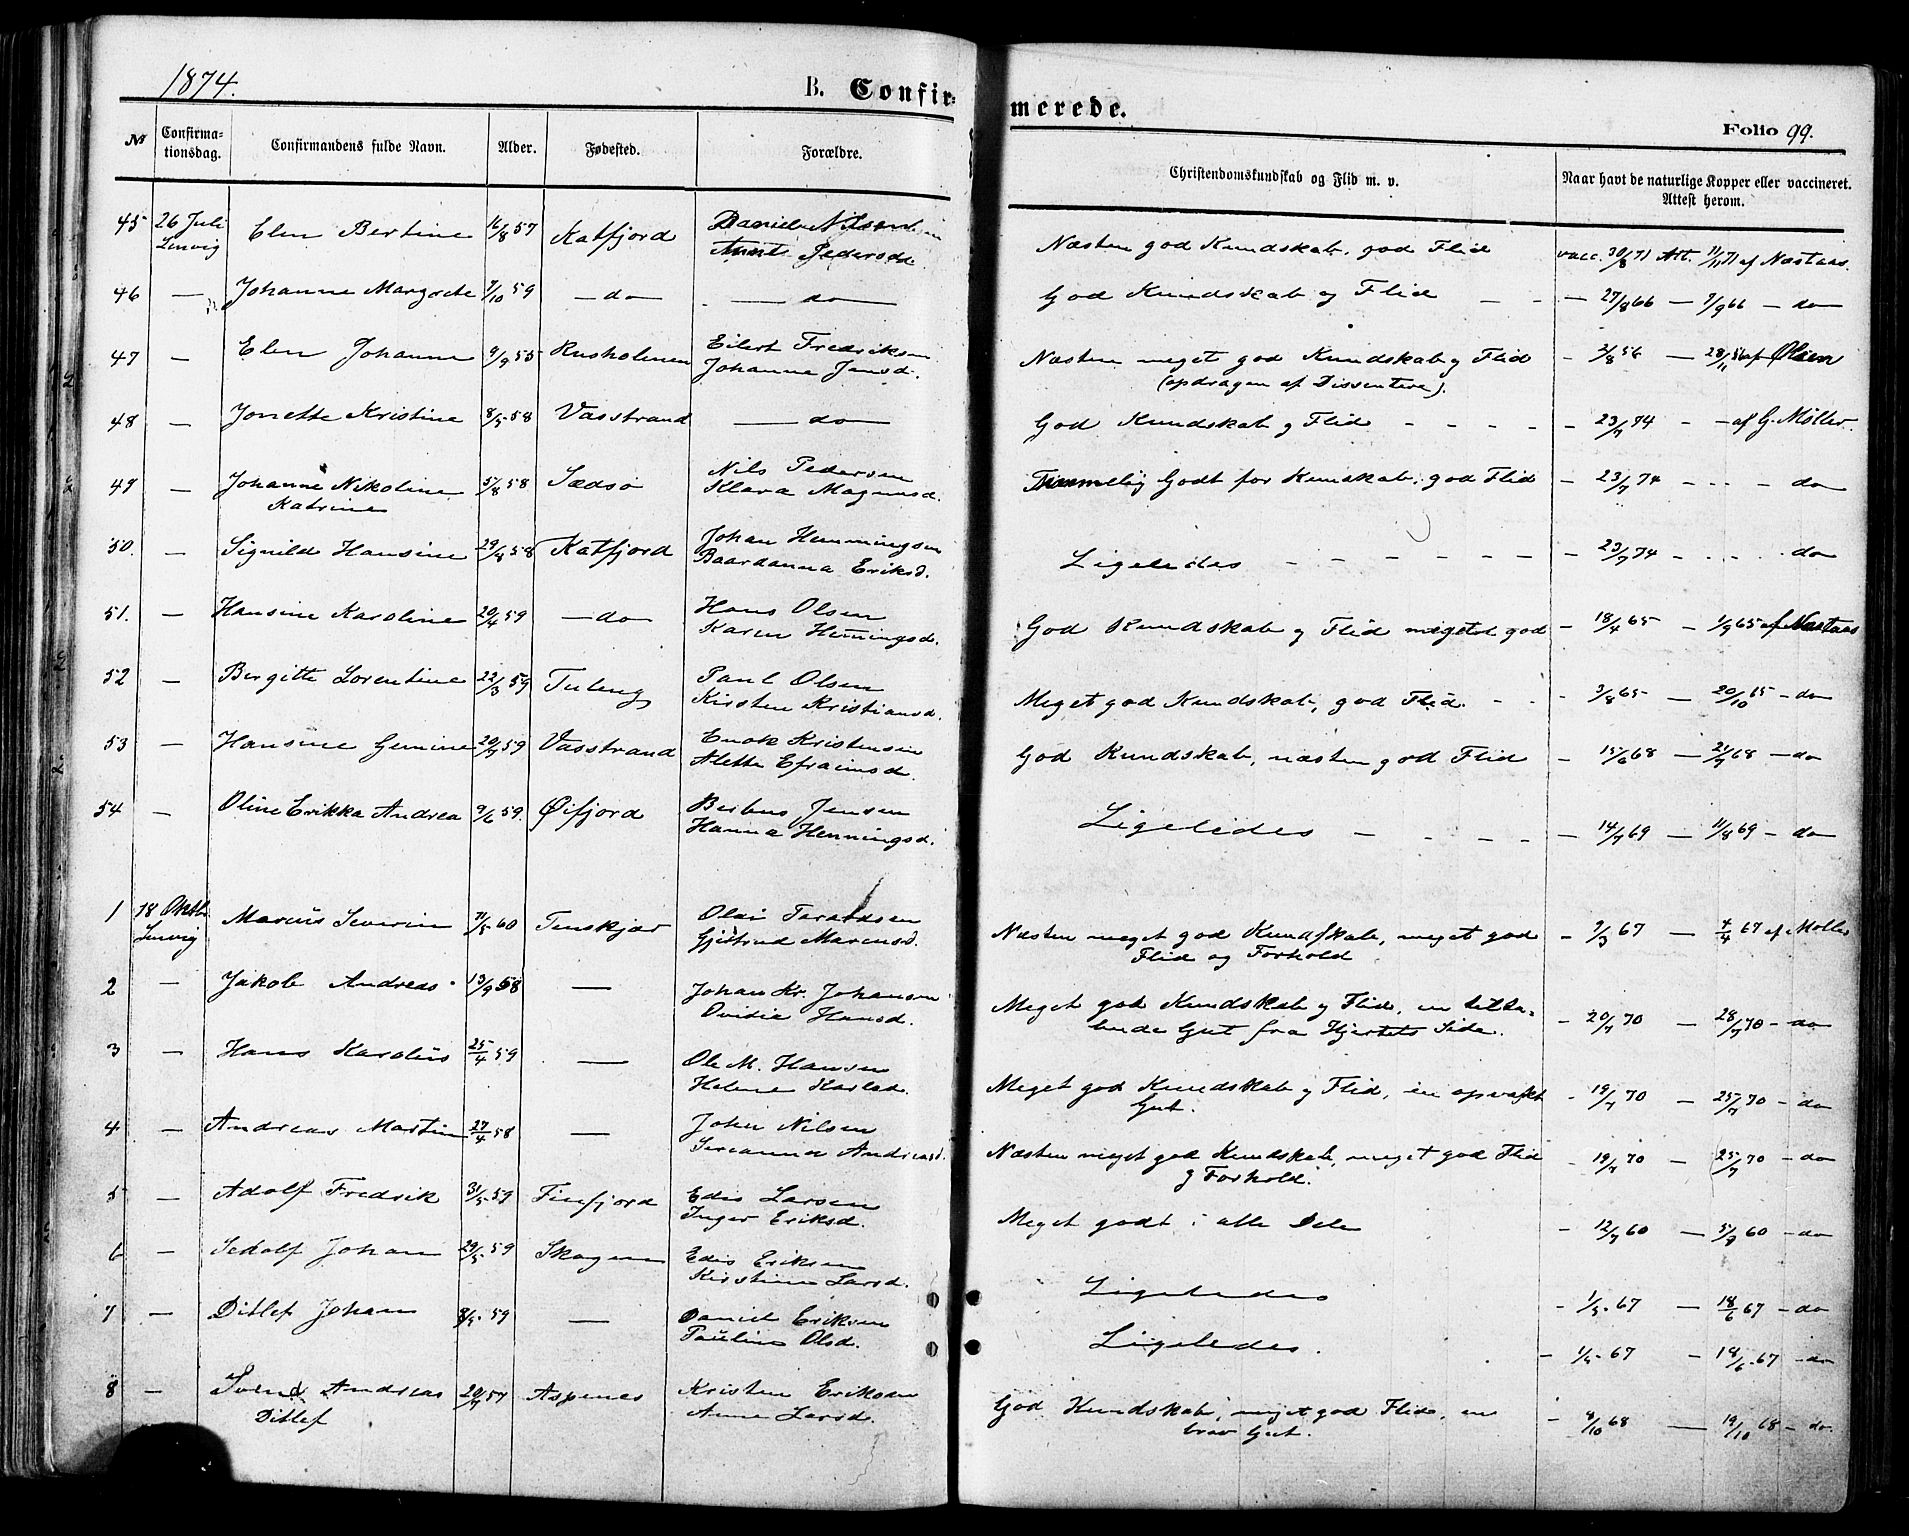 1874.
B. Confirmerede.
Folio 99.
№ Confirmationsdag. Confirmandens fulde Navn. Alder. Fødested. Forældre. Christendomskundskab og Flid m. v. Naar havt de naturlige Kopper eller vaccineret. Attest herom.
45 26 Juli Lenvig Elen Bertine 16/8 57 Katfjord Daniel Nilsen Pedersd. Næsten god Kundskab, god Flid vacc. 30/8 71 Att. 11/11 71 af Næstaas.
46 — Johanne Margrete 7/10 59 — do — — do — God Kundskab og Flid — — — 27/8 66 — 7/9 66 — do
47 — Elen Johanne 9/9 55 Rusholmen Eilert Fredriksen Johanne Jensd. Næsten meget god Kundskab og Flid (opdragen af Dissentere). - 2/8 56 — 28/11 56 af Olsen
48 — Jonette Kristine 8/5 58 Vasstrand — do — God Kundskab og Flid - - - - - 23/7 74 - - af G. Møller.
49 — Johanne Nikoline Katrine 5/8 58 Sædsø Nils Pedersen Klara Magnusd. Temmelig Godt for Kunskab, god Flid - 23/7 74 - - - - do
50. — Signilde Hansine 29/8 58 Katfjord Johan Henningsen Baardanna Eriksd. Ligeledes - - - - - - 23/7 74 - - - - do
51. — Hansine Karoline 20/4 59 — do Hans Olsen Karen Henningsd. God Kundskab og Flid megetet god - 18/4 65 - 1/9 65 af Næstaas
52 — Birgitte Lorentine 22/3 59 Tuleng Paul Olsen Kirsten Kristiansd. Meget god Kundskab, god Flid. - - - 3/8 65 — 20/10 65 - do
53 — Hansine Gemine 20/7 59 Vasstrand Enok Kristensen Alette Efraimsd. God Kundskab, næsten god Flid - 15/6 68 — 21/7 68 — do
54 — Oline Erikka Andrea 9/6 59. Øifjord Jensen Hanna Henningsd. Ligeledes — - - - — 14/7 69 — 11/8 69 - do
1 18 Oktb. Lenvig Marius Severin 11/5 60 Tenskjær Olai Taraldsen Gjertrud Mariusd. Næsten meget god Kundskab, meget god Flid og Forhold - 9/3 67 — 4/4 67 af Møller
2 — Jakob Andreas 13/9 58 — Johan Kr. Johansen Ovidia Hansd. Meget god Kundskab og Flid, en tiltalende Gut fra Hjertets Side. - 20/7 70 — 28/7 70 - do
3 — Hans Karolius 25/4 59 — Ole M. Hansen Helene Karlsd. Meget god Kundskab og Flid, en opvakt Gut. - 19/7 70 — 25/7 70 - do
4 — Andreas Martin 27/4 58 — Johan Nilsen Sereanna Andreasd. Næsten meget god Kundskab, meget god Flid og Forhold. - 19/7 70 — 25/7 70 - do
5 — Adolf Fredrik 31/5 59 Finfjord Edis Larsen Inger Eriksd. Meget godt i alle Dele - 12/7 60 — 5/9 60 - do
6 — Sedolf Johan 29/5 59 Skogen Edis Eriksen Kirstine Larsd. Ligeledes - 1/5 67 — 18/6 67 - do
7 — Ditlef Johan 8/5 59 — Daniel Eriksen Pauline Olsd. Ligeledes. - 1/5 67 — 18/6 67 - do
8 — Svend Andreas Ditlef 20/7 57 Aspenes Kristen Eriksen Anne Larsd. God Kundskab, meget god Flid, en brav Gut. - 8/10 68 — 19/10 68 - do.